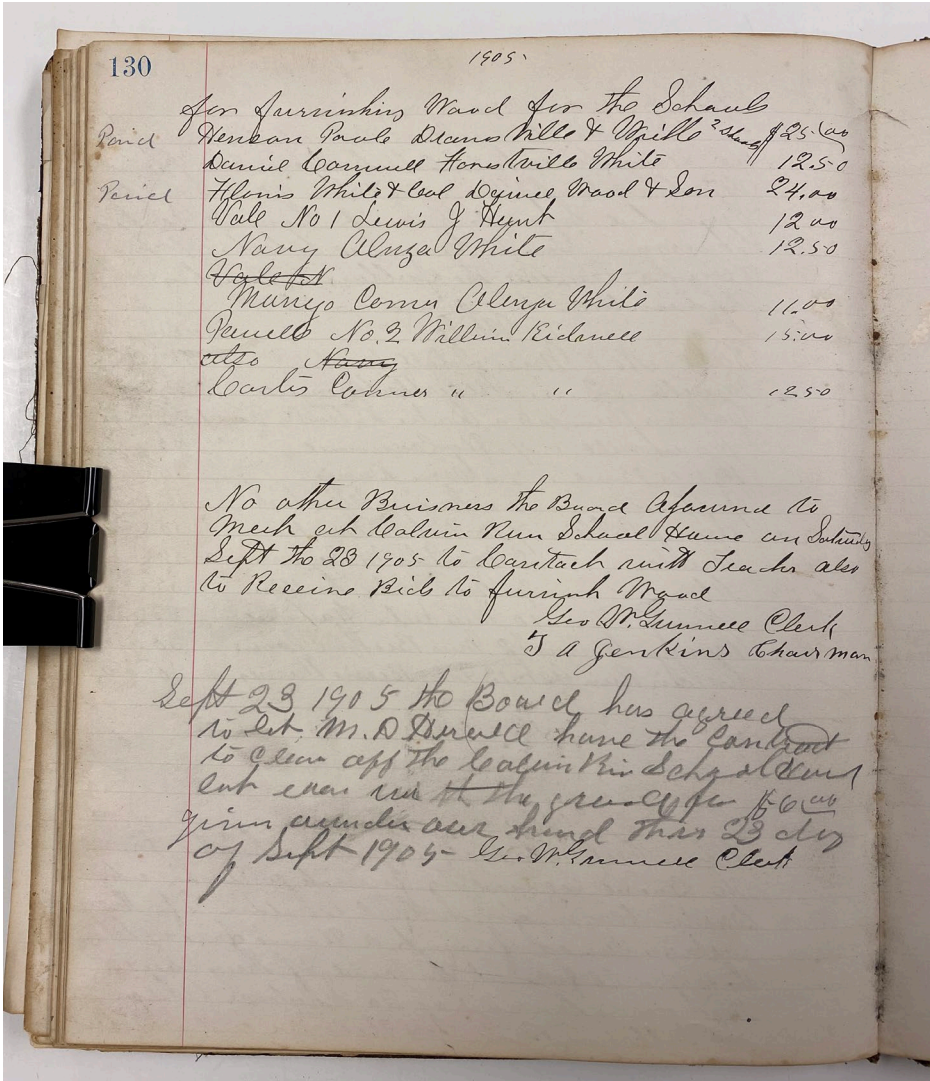 130
1905
for furnishing Wood for the Schools
Paid Henson Poole Dranesville & Wills 2 $25.00
Daniel Forestville White 12.50
Paid Floris White & Col Wood & Son 24.00
Vale No 1 Lewis J Hunt 12 00
Navy Alonza White 12.50
Vale N
Mungo Corner Alonza White 11.00
No. 2 William Kidwell 15.00
also Navy
Corner " " 12 50
No other Buisness the Board to
Meet at Colvin Run School House on Saturday
Sept the 23 1905 to with Teacher also
to Receive Bids to furnish Wood
Geo W. Gunnell Clerk
T A Jenkins Chairman
Sept 23 1905 the Board has agreed
to let M. D have the Contract
to Clean off the Colvin Run School
cut even with the ground for $6 00
given under our hand this 23 day
of Sept 1905 Geo W. Gunnell Clerk